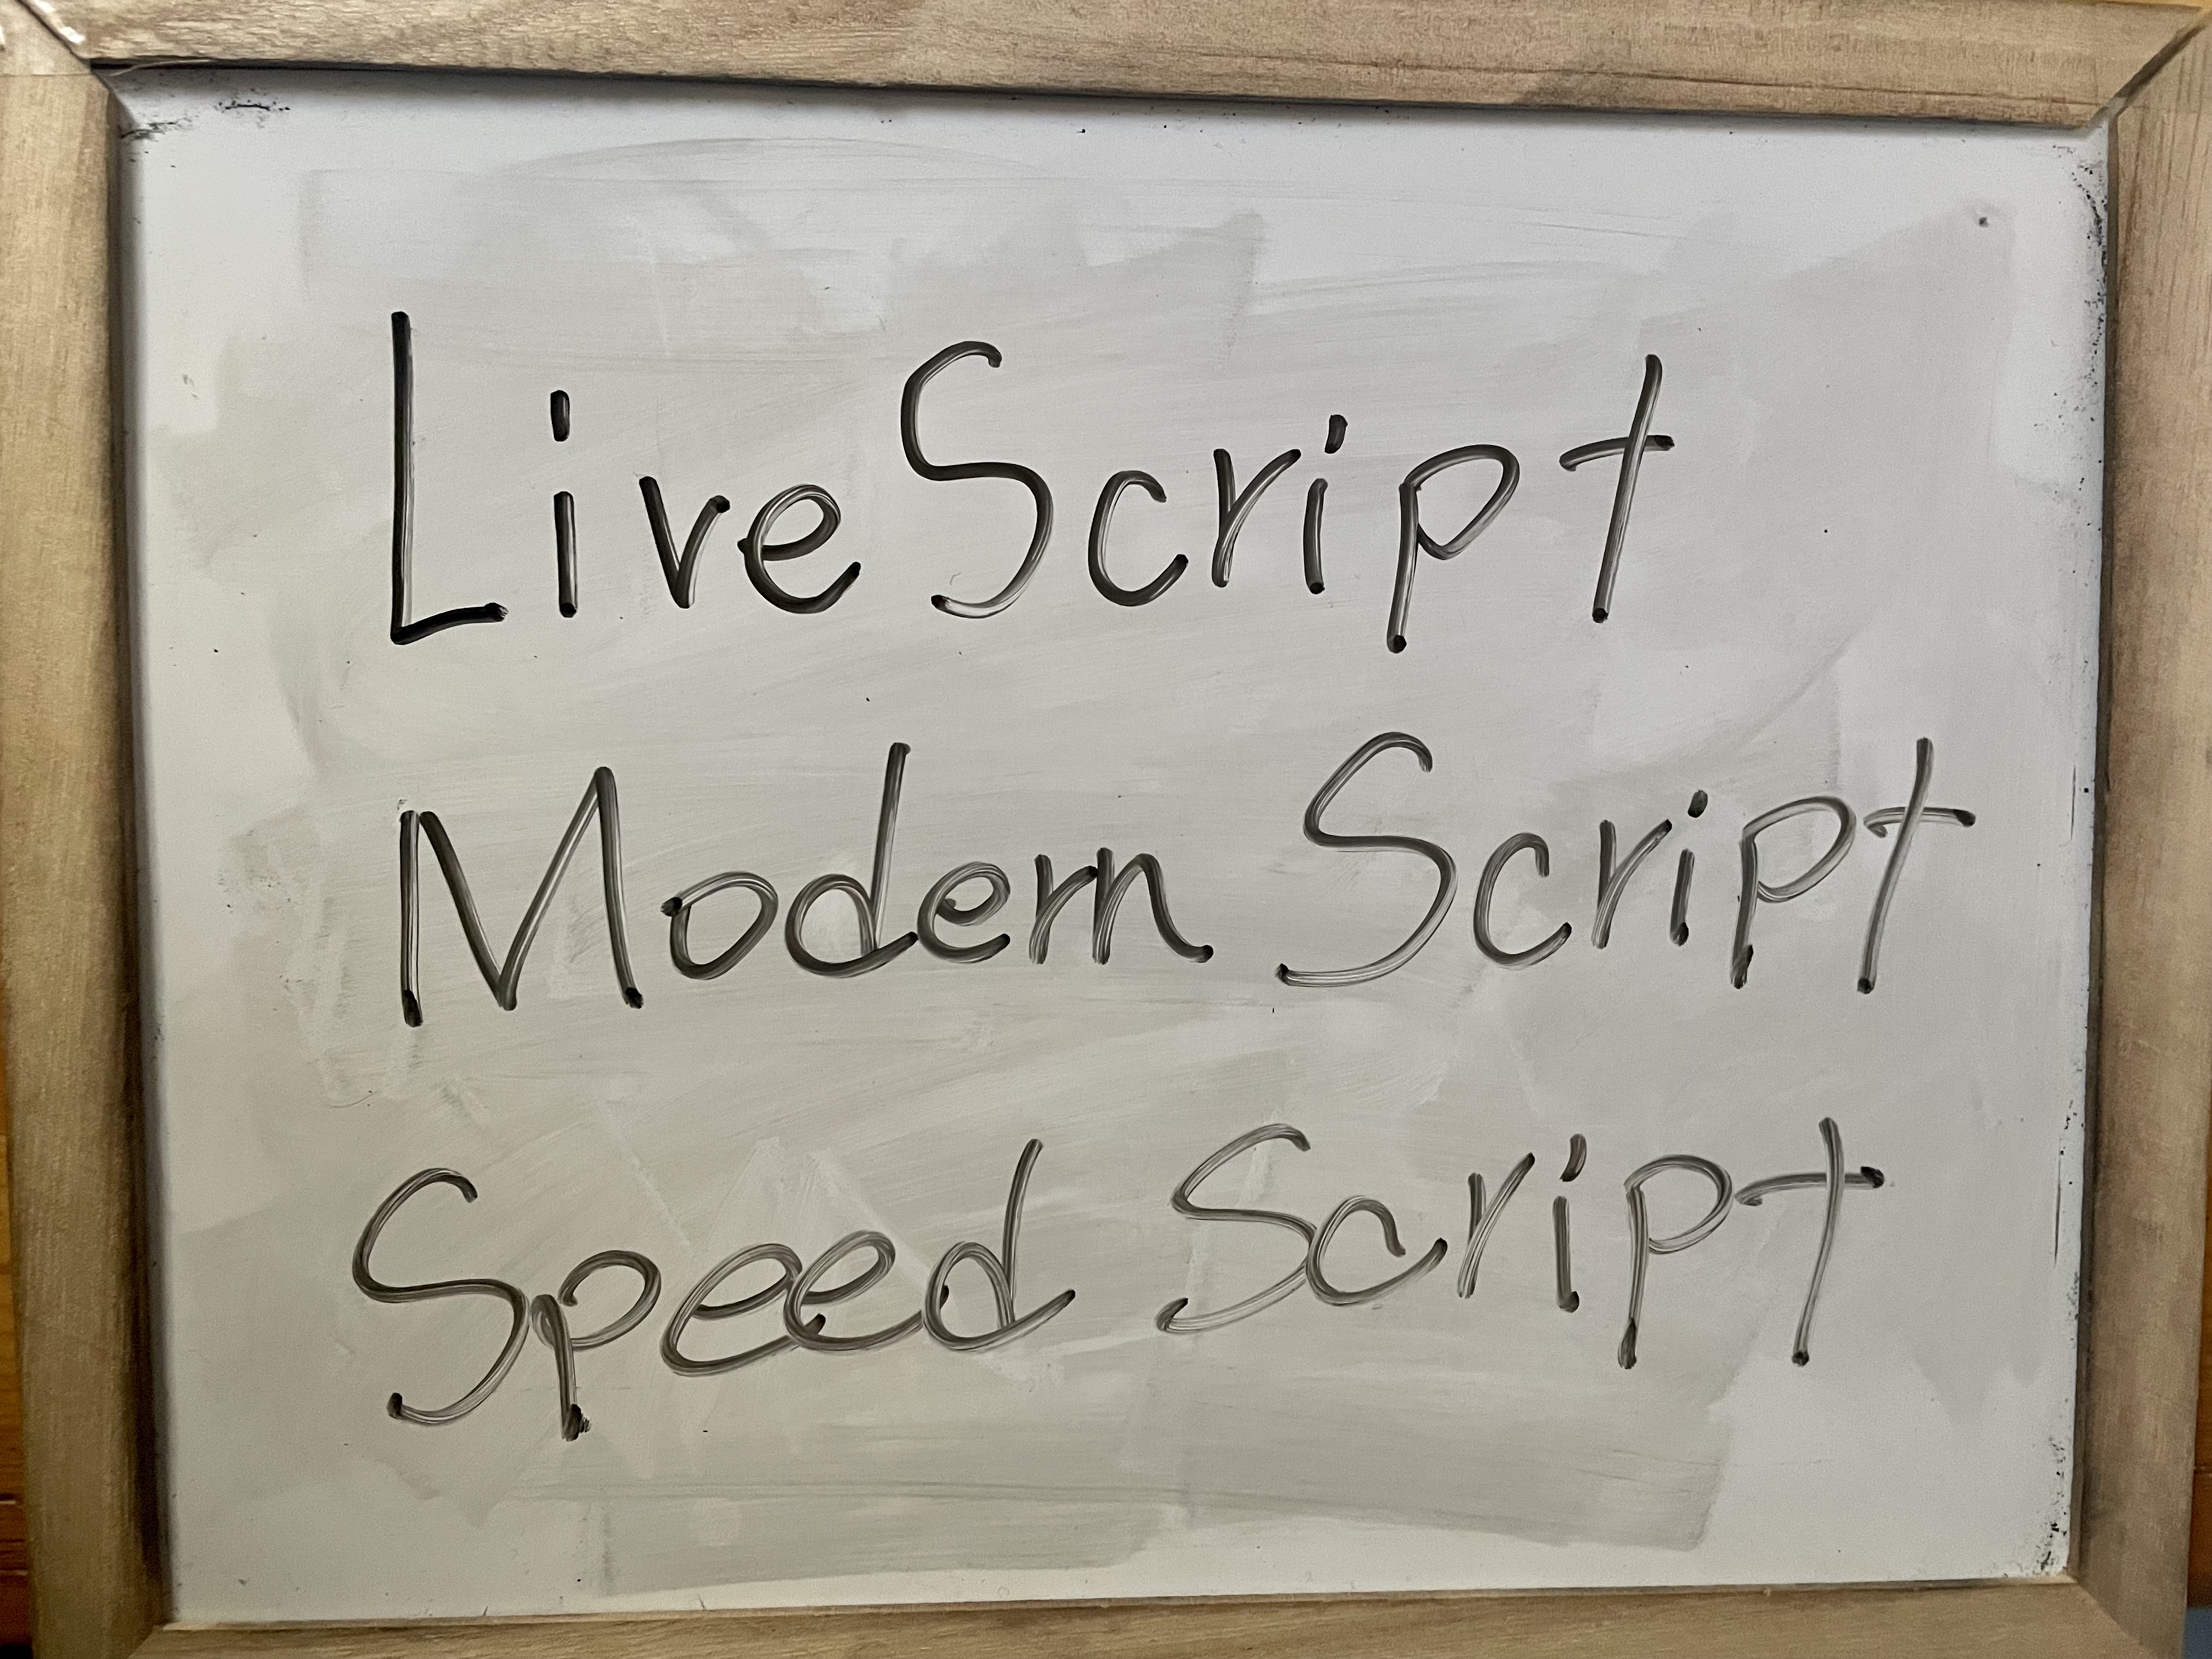 LiveScript
Modern Script
Speed Script